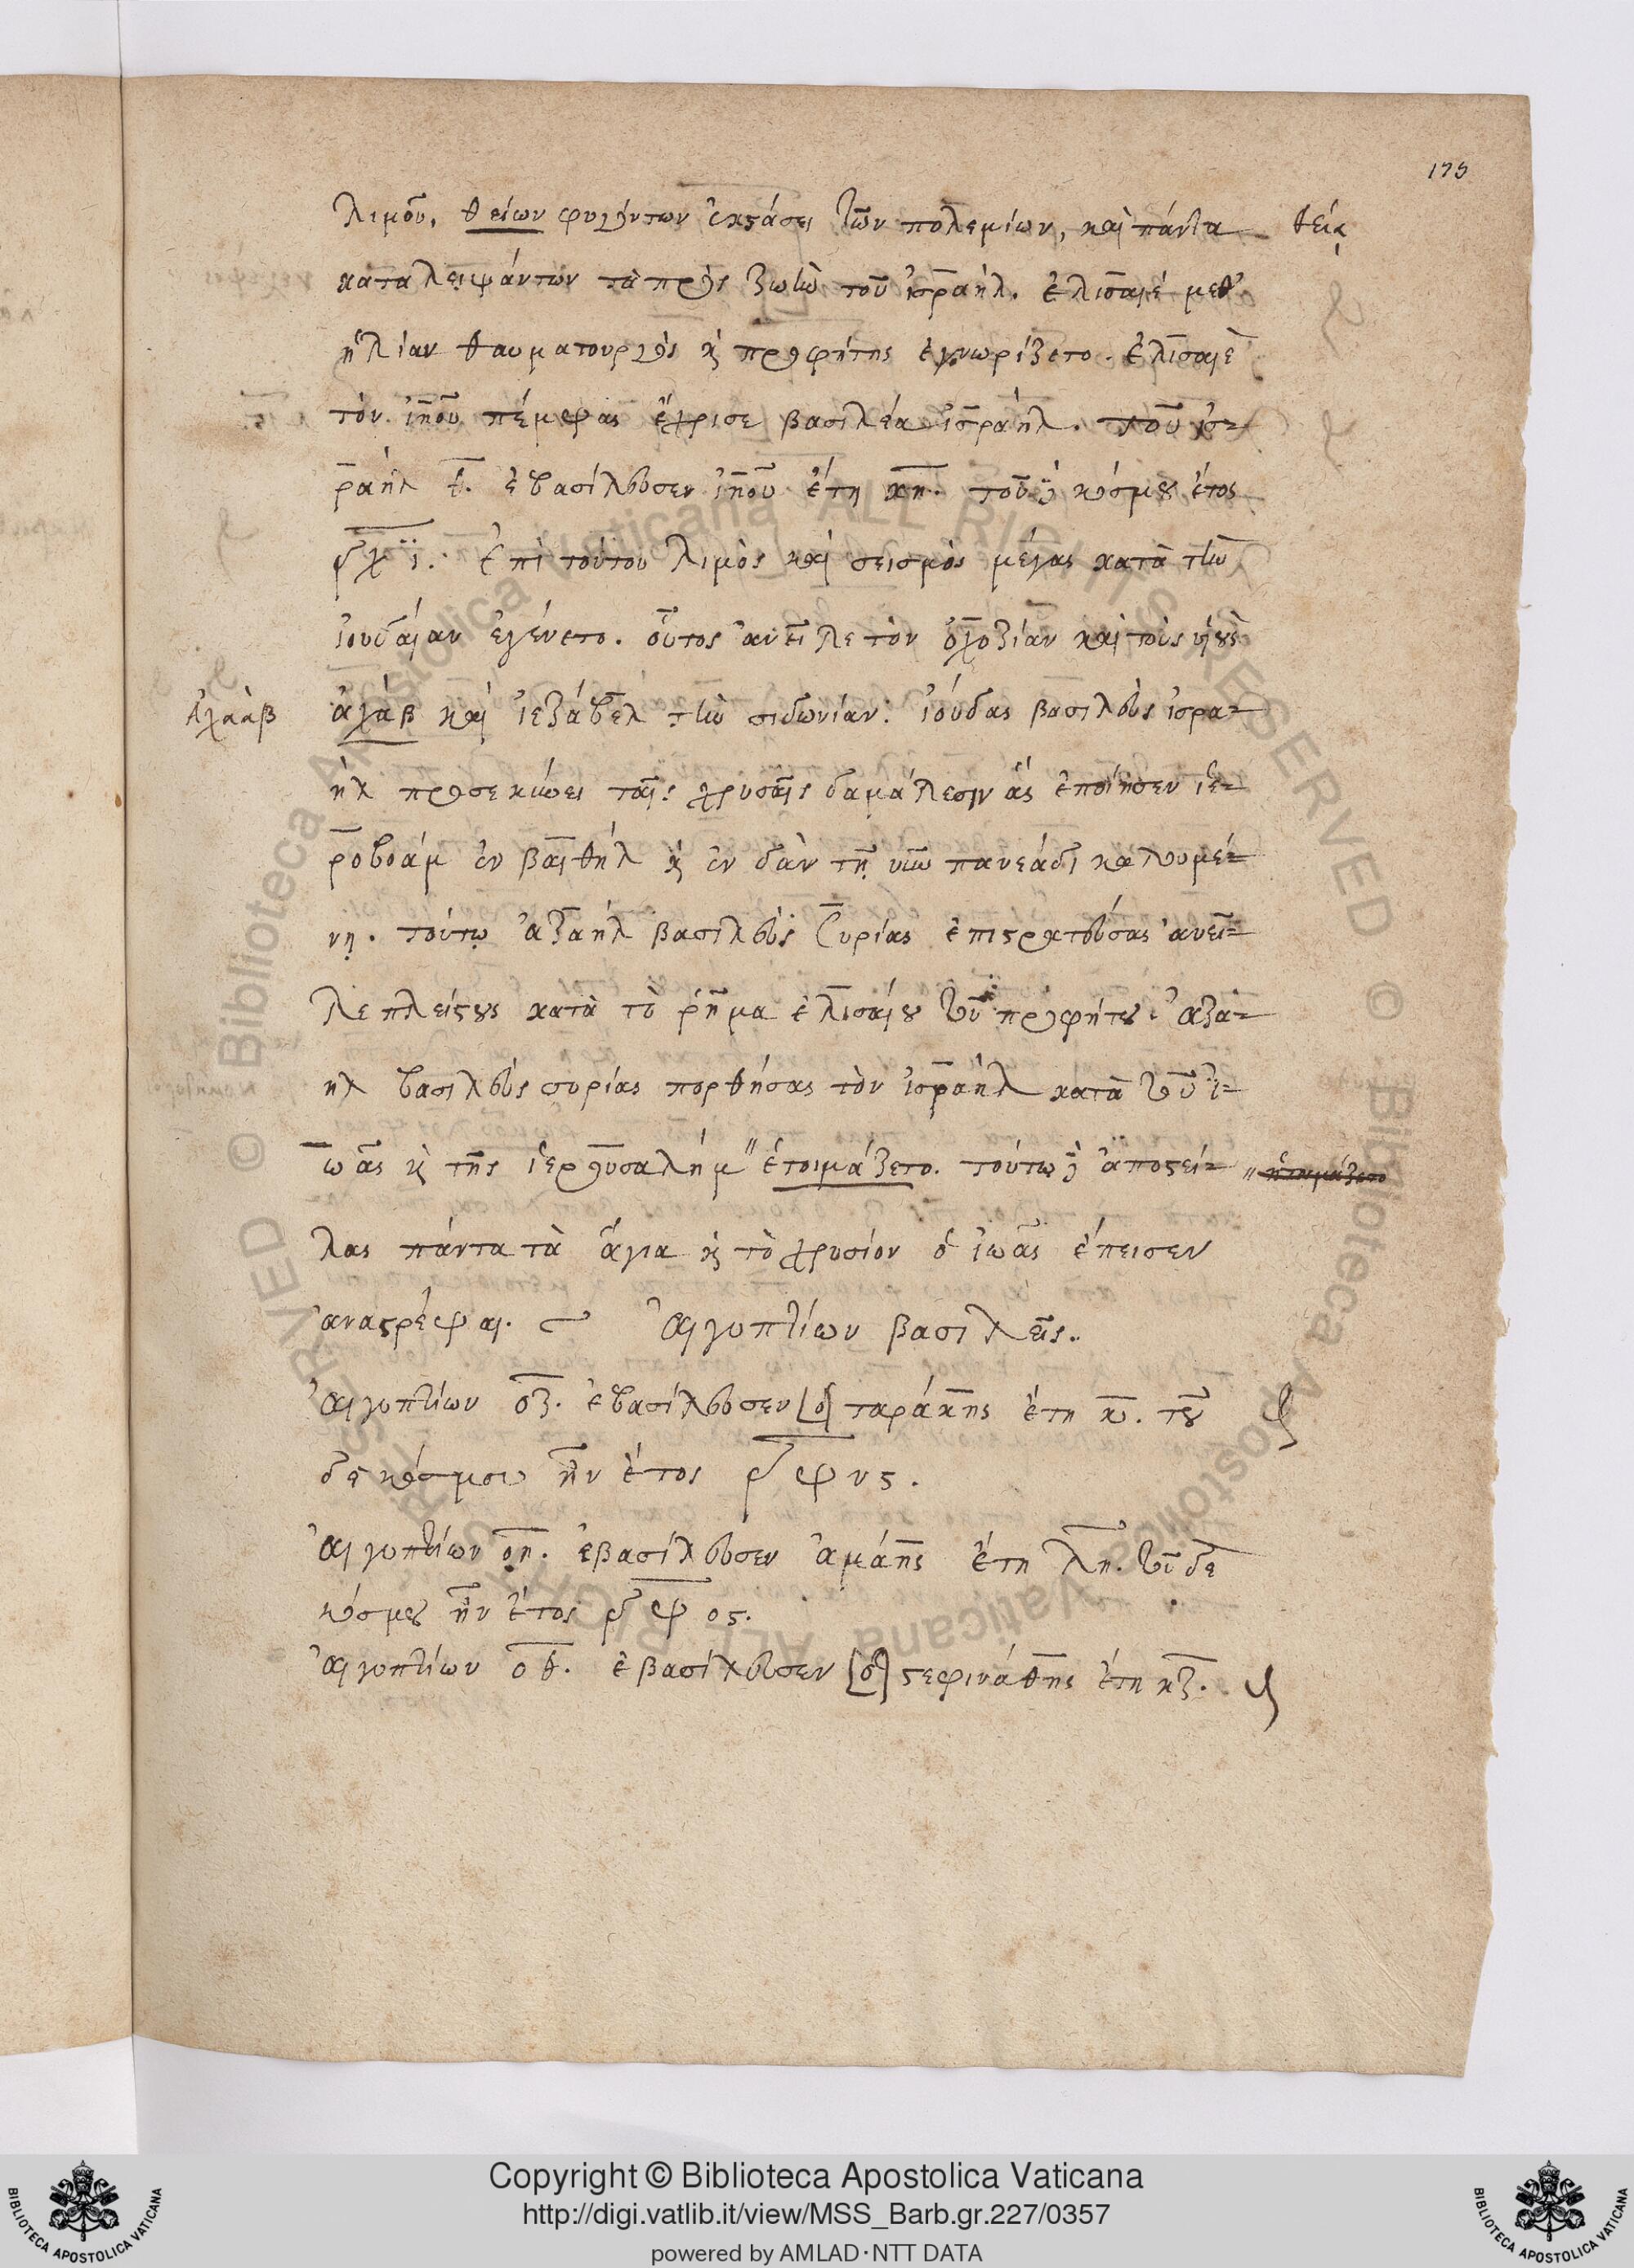 175
λιμοῦ, θείων φυγόντων ἐκστάσει τῶν πολεμίων, καὶ πάντα θείᾳ
καταλειψάντων τὰ πρὸς ζωὴν τοῦ ἰσραήλ. ἐλισσαιὲ μεθ'
ἡλίαν θαυματουργὸς κ προφήτης ἐγνωρίζετο. ἐλισσαιὲ
τὸν ἰηοῦ πέμψας ἔχρισε βασιλέα ἰσραήλ. τοῦ ἰσ-
ραὴλ θ. ἐβασίλευσεν ἰηοῦ ἔτη κη. τοῦ δὲ κόσμου ἔτος
ἐπὶ τούτου λιμὸς καὶ σεισμὸς μέγας κατὰ τὴν
ἰουδαίαν ἐγένετο. οὗτος ἀνεῖλε τὸν ὀχοζίαν καὶ τοὺς υἱοὺς
Ἀχαὰβ ἀχὰβ καὶ ἰεζάβελ τὴν σιδωνίαν. ἰούδας βασιλεὺς ἰσρα-
ὴλ προσεκύνει ταῖς χρυσαῖς δαμάλεσιν ἃς ἐποίησεν ἱε-
ροβοάμ ἐν βαιθὴλ κ ἐν δὰν τῇ νῦν πανεάδι καλουμέ-
νῃ. τούτῳ ἀζαὴλ βασιλεὺς συρίας ἐπιστρατεύσας ἀνεῖ-
λε πλείστους κατὰ τὸ ῥῆμα ἐλισσαίου τοῦ προφήτου. ἀζα-
ὴλ βασιλεὺς συρίας πορθήσας τὸν ἰσραὴλ κατὰ τοῦ ἰ-
ωᾶς κ τῆς ἱερουσαλήμ " ἑτοιμάζετο. τούτῳ δὲ ἀποστεί- " ἡτοιμάζετο
λας πάντα τὰ ἅγια κ τὸ χρυσίον ὁ ἰωᾶς ἔπεισεν
ἀναστρέψαι. Αἰγυπτίων βασιλεῖς.
Αἰγυπτίων οζ. ἐβασίλευσεν [ὁ] ταράκης ἔτη κ. τοῦ
δὲ κόσμου ἦν ἔτος ͵γφνς.
Αἰγυπτίων οη. ἐβασίλευσεν ἀμάης ἔτη λη. τοῦ δὲ
κόσμου ἦν ἔτος ͵γφος.
Αἰγυπτίων οθ. ἐβασίλευσεν [ὁ] στεφινάθης ἔτη κζ.
Copyright © Biblioteca Apostolica Vaticana
http://digi.vatlib.it/view/MSS_Barb.gr.227/0357
powered by AMLAD·NTT DATA